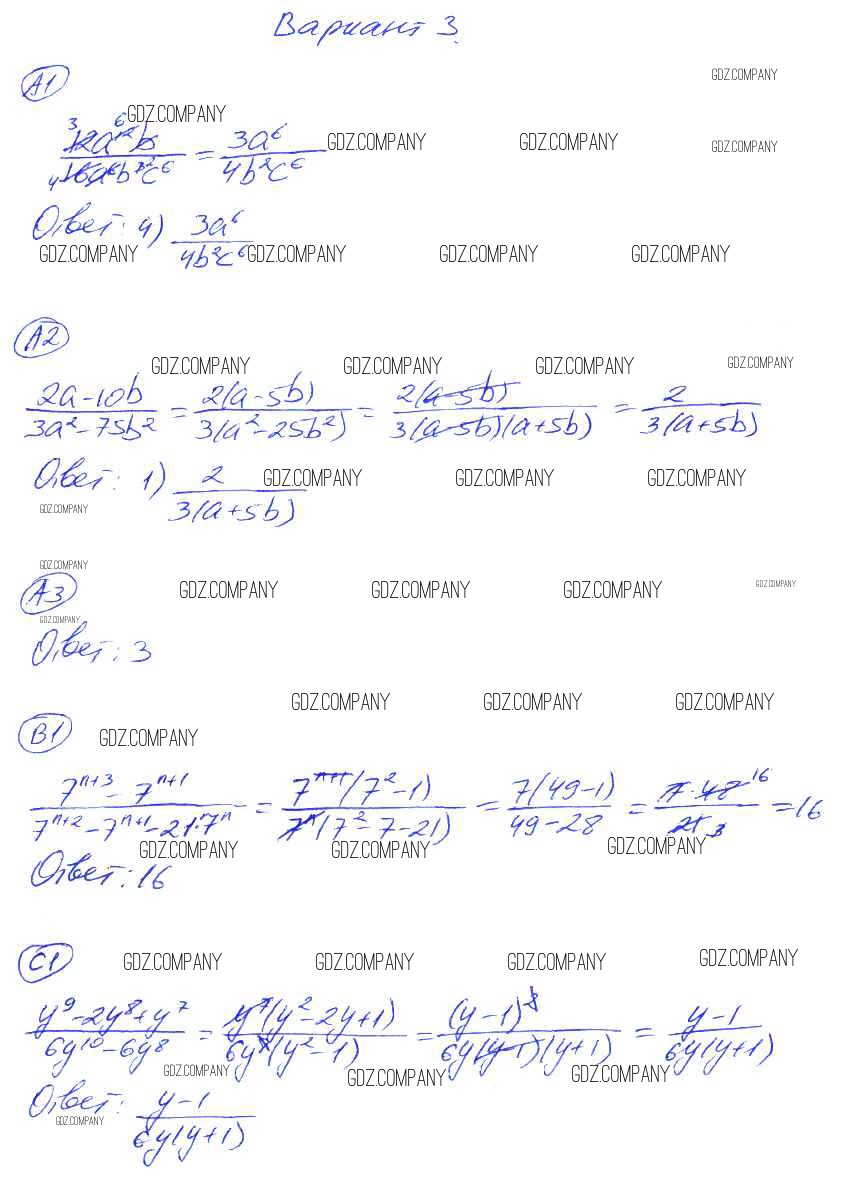 Вариант 3.
А1
GDZ.COMPANY
GDZ.COMPANY
12a¹²b / 16a⁶b³c⁶ = 3a⁶ / 4b²c⁶ GDZ.COMPANY GDZ.COMPANY GDZ.COMPANY
Ответ: 4) 3a⁶ / 4b²c⁶
GDZ.COMPANY GDZ.COMPANY GDZ.COMPANY GDZ.COMPANY
А2
GDZ.COMPANY GDZ.COMPANY GDZ.COMPANY GDZ.COMPANY
2a-10b / 3a²-75b² = 2(a-5b) / 3(a²-25b²) = 2(a-5b) / 3(a-5b)(a+5b) = 2 / 3(a+5b)
Ответ: 1) 2 / 3(a+5b) GDZ.COMPANY GDZ.COMPANY GDZ.COMPANY
GDZ.COMPANY
GDZ.COMPANY
А3 GDZ.COMPANY GDZ.COMPANY GDZ.COMPANY GDZ.COMPANY
GDZ.COMPANY
Ответ: 3
GDZ.COMPANY GDZ.COMPANY GDZ.COMPANY
В1 GDZ.COMPANY
7ⁿ⁺³ - 7ⁿ⁺¹ / 7ⁿ⁺² - 7ⁿ⁺¹ - 21·7ⁿ = 7ⁿ⁺¹(7²-1) / 7ⁿ(7²-7-21) = 7(49-1) / 49-28 = 7·48 16 / 21 3 = 16
GDZ.COMPANY GDZ.COMPANY GDZ.COMPANY
Ответ: 16
С1 GDZ.COMPANY GDZ.COMPANY GDZ.COMPANY GDZ.COMPANY
y⁹-2y⁸+y⁷ / 6y¹⁰-6y⁸ = y⁷(y²-2y+1) / 6y⁸(y²-1) = (y-1)² / 6y(y-1)(y+1) = y-1 / 6y(y+1)
GDZ.COMPANY GDZ.COMPANY GDZ.COMPANY
Ответ: y-1 / 6y(y+1)
GDZ.COMPANY